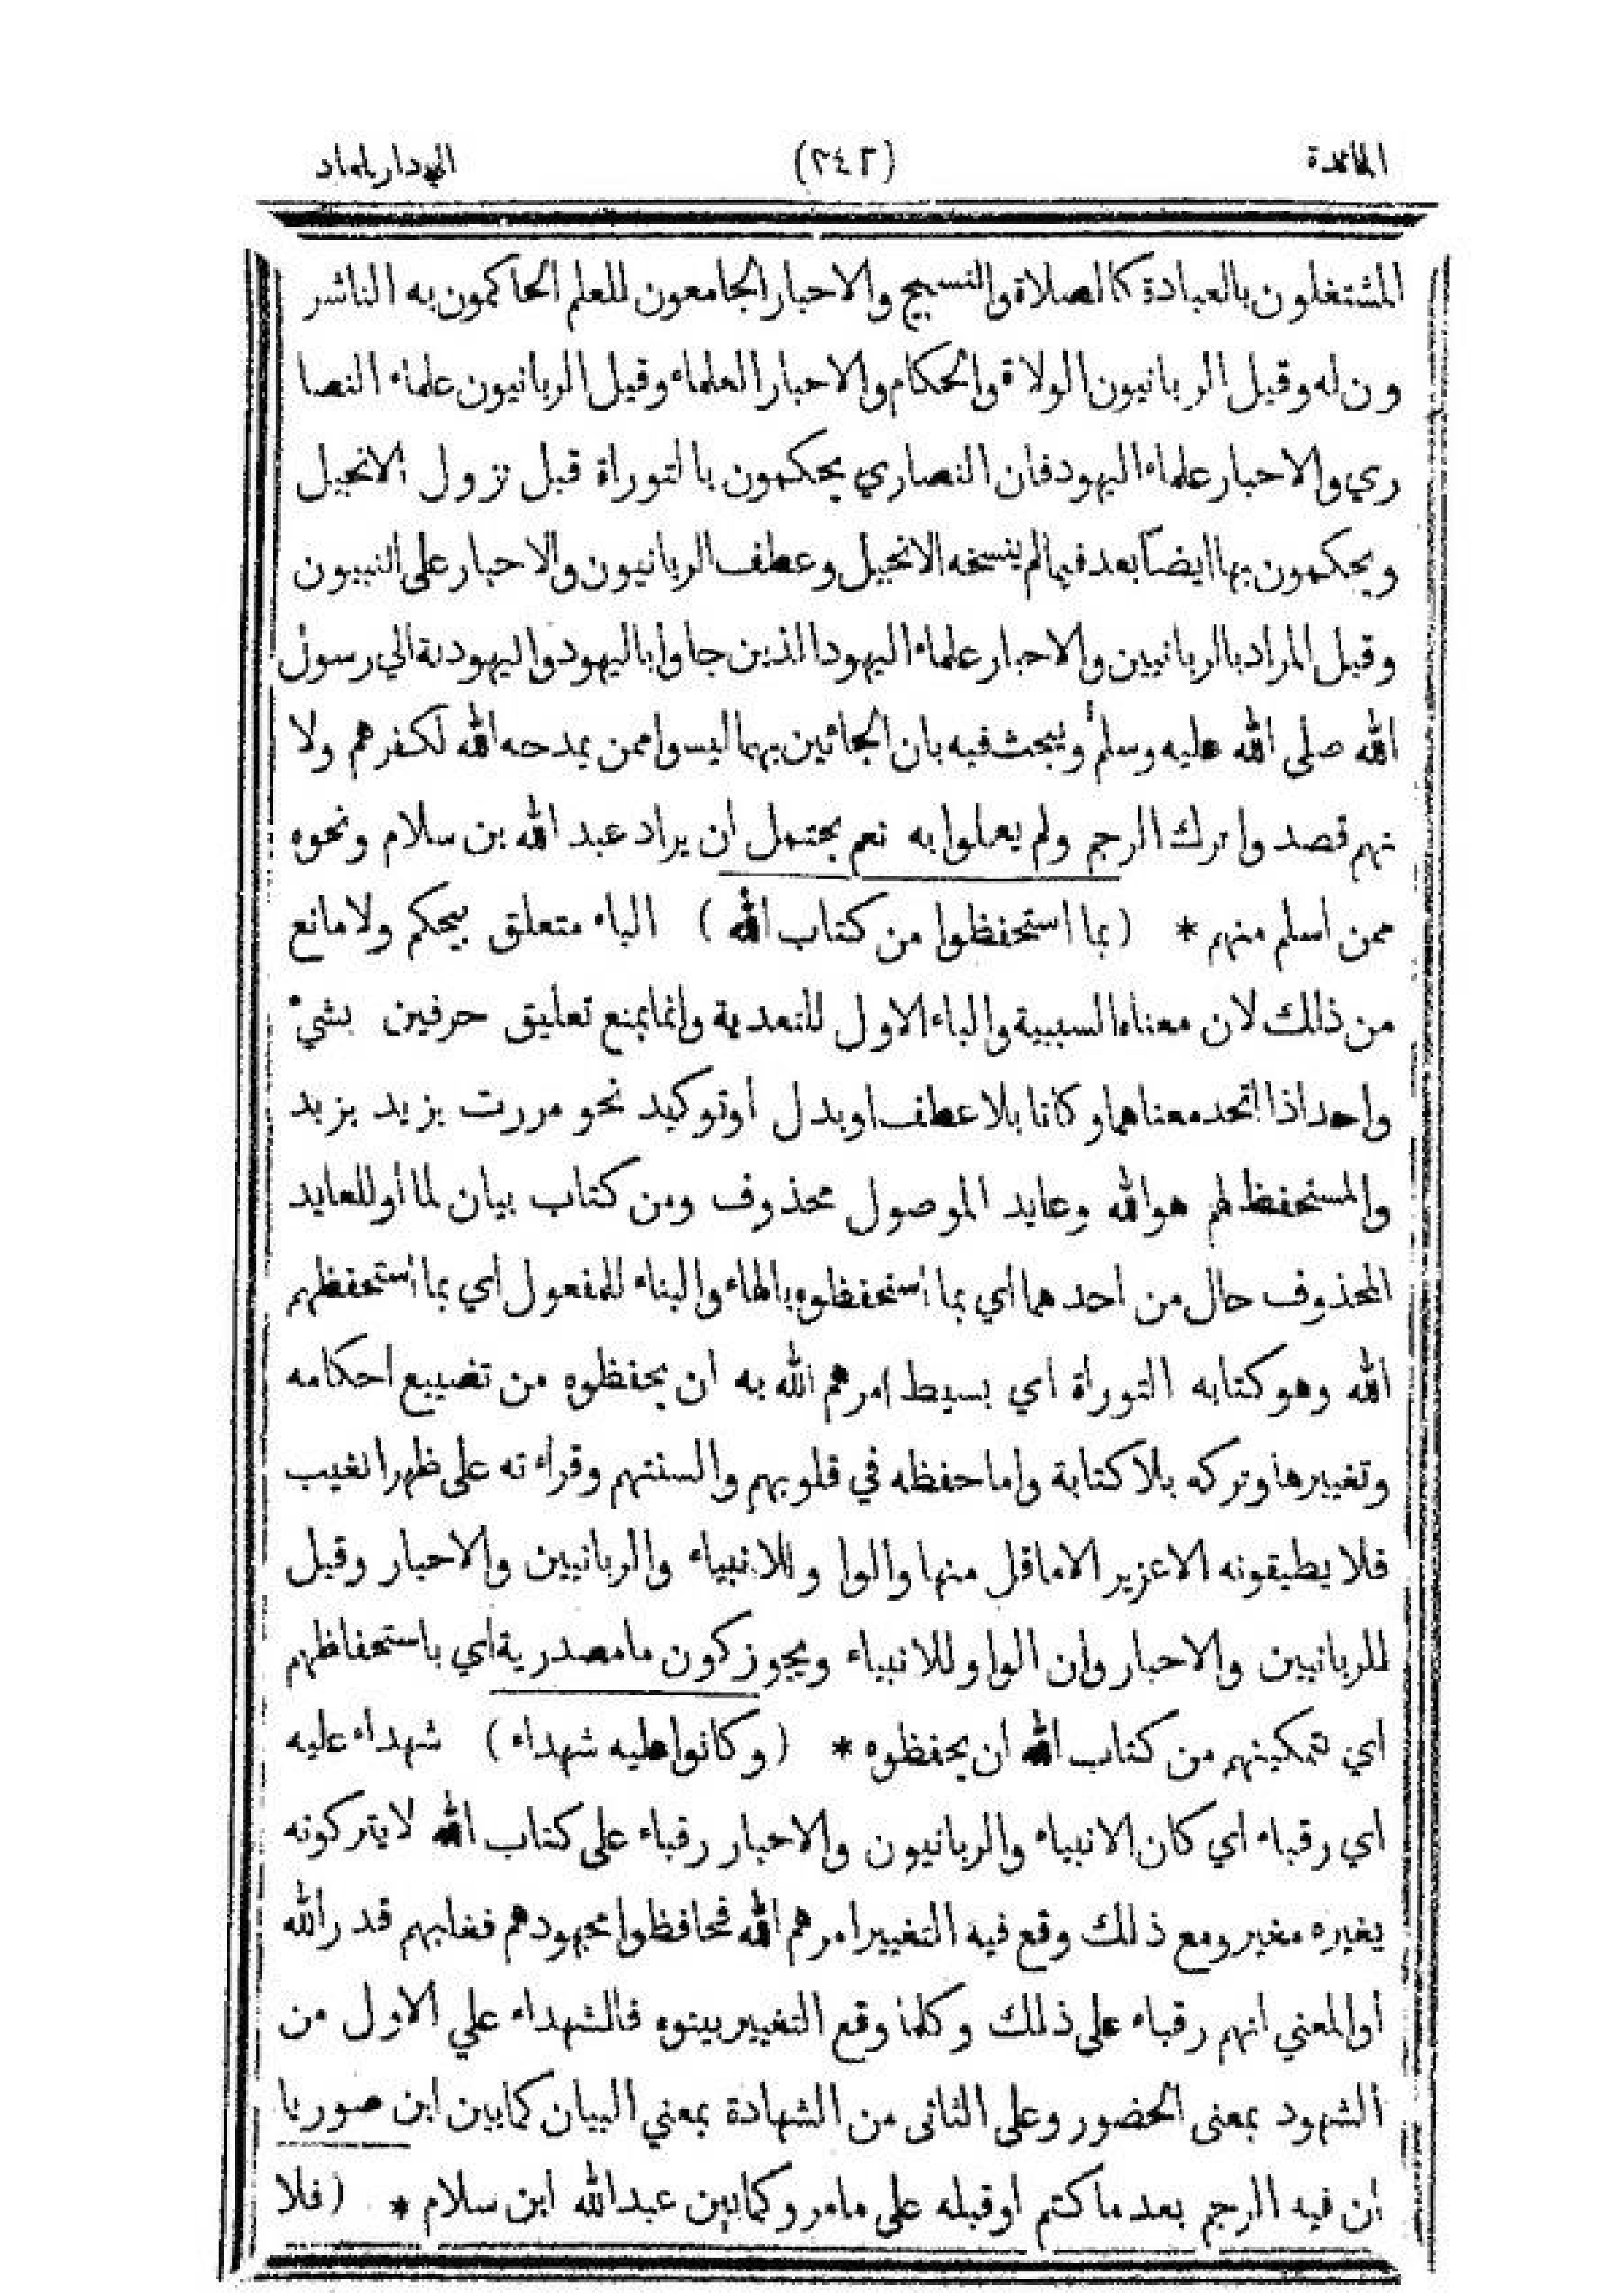 المائدة (٢٤٢) الهود دار بلماد
المشتغلون بالعبادة كالصلاة والتسبيح والاحبار الجامعون للعلم الحاكمون به الناشر
ون له وقيل الربانيون الولاة والحكام والاحبار العلماء وقيل الربانيون علماء النصا
ري والاحبار علماء اليهود فان النصاري يحكمون بالتوراة قبل نزول الانجيل
ويحكمون بها ايضاً بعد فيما لم ينسخه الانجيل وعطف الربانيون والاحبار على النبيون
وقيل المراد بالربانيين والاحبار علماء اليهود الذين جاوا باليهود واليهودية الي رسول
الله صلى الله عليه وسلم ويبحث فيه بان الجائين بهما ليسوا ممن يمدحه الله لكفرهم ولا
نهم قصدوا ترك الرجم ولم يعملوا به نعم يحتمل ان يراد عبد الله بن سلام ونحوه
ممن اسلم منهم * (بما استحفظوا من كتاب الله) الباء متعلق بيحكم ولا مانع
من ذلك لان معناه السببية والباء الاول للتعدية وانما يمنع تعليق حرفين بشيء
واحد اذا اتحد معناهما وكانا بلا عطف او بدل او توكيد نحو مررت بزيد بزيد
والمستحفظ لهم هو الله وعايد الموصول محذوف ومن كتاب بيان لما أو للعايد
المحذوف حال من احدهما أي بما استحفظوه بالهاء والبناء للمفعول أي بما استحفظهم
الله وهو كتابه التوراة اي بسيط امرهم الله به ان يحفظوه من تضييع احكامه
وتغييرها وتركه بلا كتابة واما حفظه في قلوبهم والسنتهم وقراءته على ظهر الغيب
فلا يطيقونه الا عزير الا ماقل منها والوا و للانبياء والربانيين والاحبار وقيل
للربانيين والاحبار وان الواو للانبياء ويجوز كون ما مصدرية اي باستحفاظهم
اي تمكينهم من كتاب الله ان يحفظوه * (وكانوا عليه شهداء) شهداء عليه
اي رقباء اي كان الانبياء والربانيون والاحبار رقباء على كتاب الله لا يتركونه
يغيره مغير ومع ذلك وقع فيه التغيير امرهم الله فحافظوا مجهودهم فغلبهم قدر الله
أو المعني انهم رقباء على ذلك وكلما وقع التغيير بينوه فالشهداء علي الاول من
الشهود بمعنى الحضور وعلى الثانى من الشهادة بمعني البيان كما بين ابن صوريا
ان فيه الرجم بعد ما كتم او قبله على مامر وكما بين عبد الله ابن سلام * (فلا